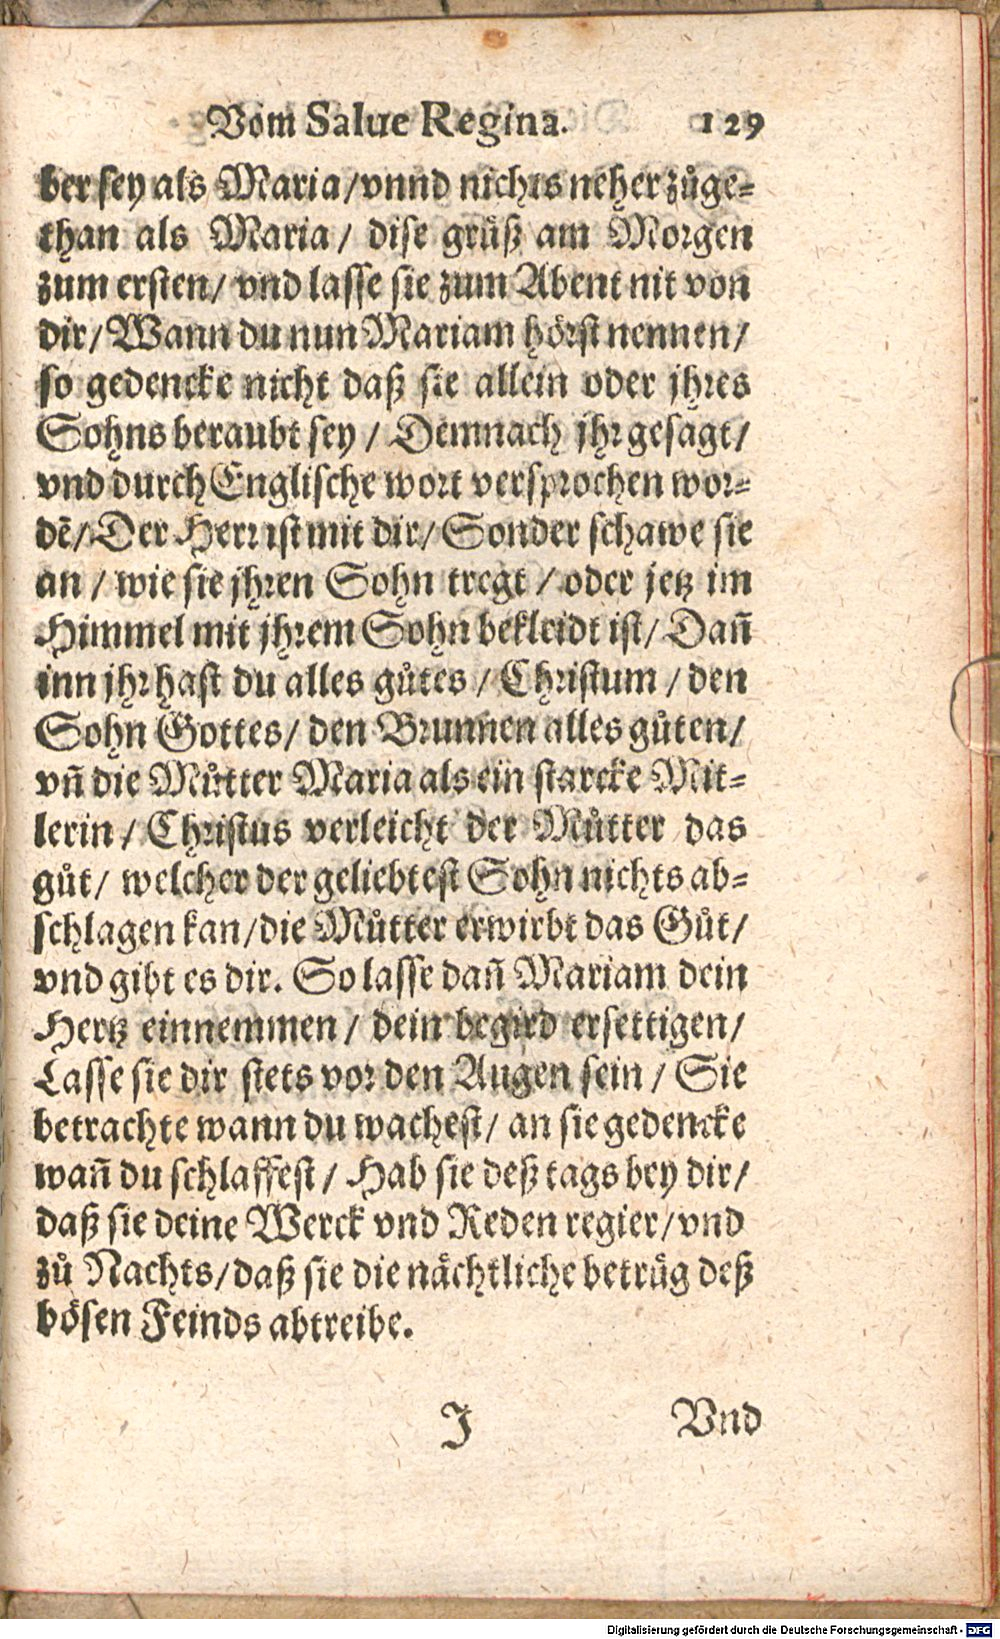 Vom Salue Regina. 129
ber sey als Maria/ vnnd nichts neher zůge=
than als Maria/ dise grüß am Morgen
zum ersten/ vnd lasse sie zum Abent nit von
dir/ Wann du nun Mariam hörst nennen/
so gedencke nicht daß sie allein oder jhres
Sohns beraubt sey/ Demnach jhr gesagt/
vnd durch Englische wort versprochen wor=
dẽ/ Der Herr ist mit dir/ Sonder schawe sie
an/ wie sie jhren Sohn tregt/ oder jetz im
Himmel mit jhrem Sohn bekleidt ist/ Dañ
inn jhr hast du alles gůtes/ Christum/ den
Sohn Gottes/ den Brunnen alles gůten/
vñ die Můtter Maria als ein starcke Mit=
lerin/ Christus verleicht der Můtter das
gůt/ welcher der geliebtest Sohn nichts ab=
schlagen kan/ die Můtter erwirbt das Gůt/
vnd gibt es dir. So lasse dañ Mariam dein
Hertz einnemmen/ dein begird ersettigen/
Lasse sie dir stets vor den Augen sein/ Sie
betrachte wann du wachest/ an sie gedencke
wañ du schlaffest/ Hab sie deß tags bey dir/
daß sie deine Werck vnd Reden regier/ vnd
zů Nachts/ daß sie die nächtliche betrüg deß
bösen Feinds abtreibe.
J Vnd
Digitalisierung gefördert durch die Deutsche Forschungsgemeinschaft - DFG